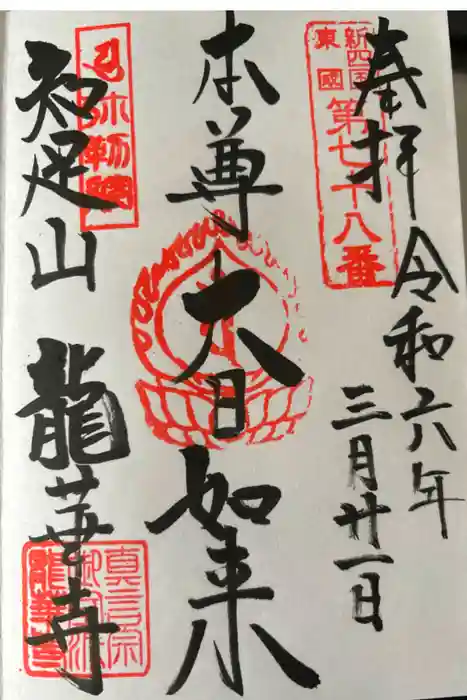 奉拝
令和六年
三月廿一日
新四国
東國
第七十八番
本尊
大日如来
知足山
龍華寺
真言宗
御室派
龍華寺